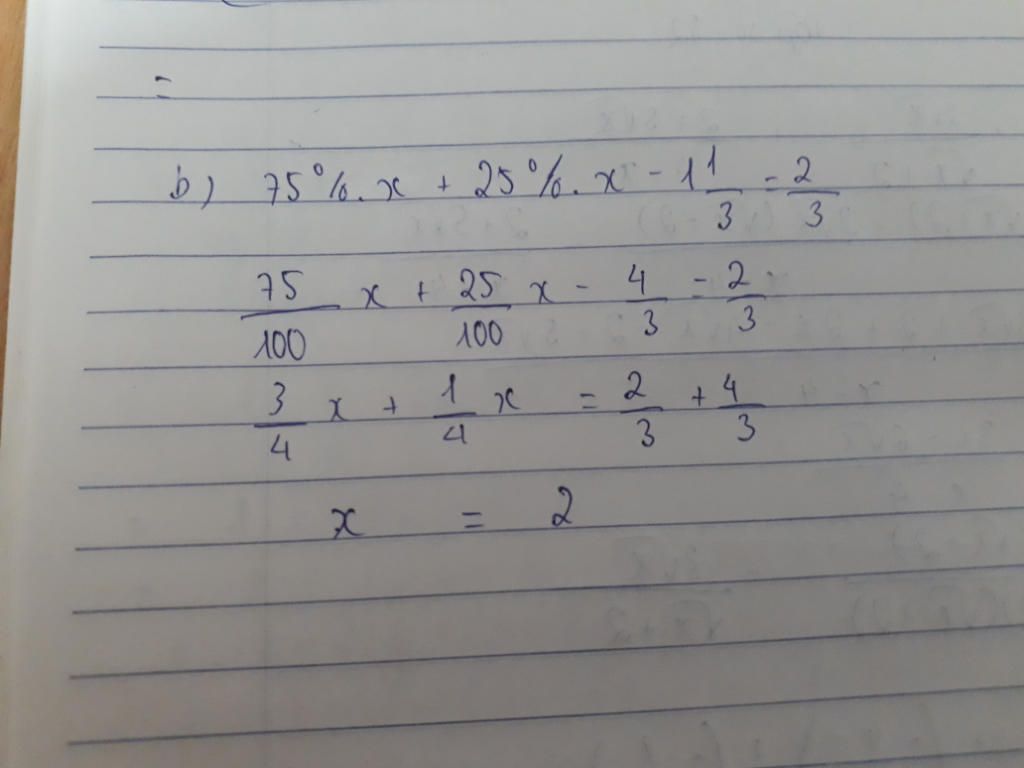 =
b) 75%.x + 25%.x - 1 1/3 = 2/3
75/100 x + 25/100 x - 4/3 = 2/3
3/4 x + 1/4 x = 2/3 + 4/3
x = 2